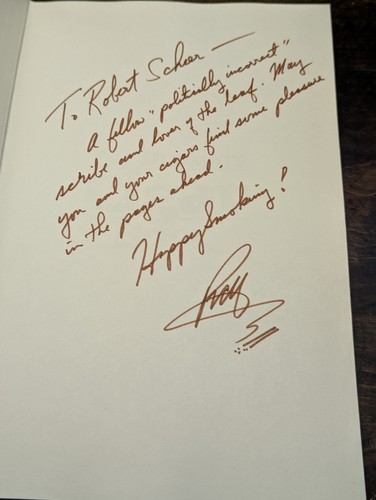 To Robert Scheer —
A fellow "politically incorrect"
scribe and lover of the leaf. May
you and your cigars find some pleasure
in the pages ahead.
Happy Smoking!